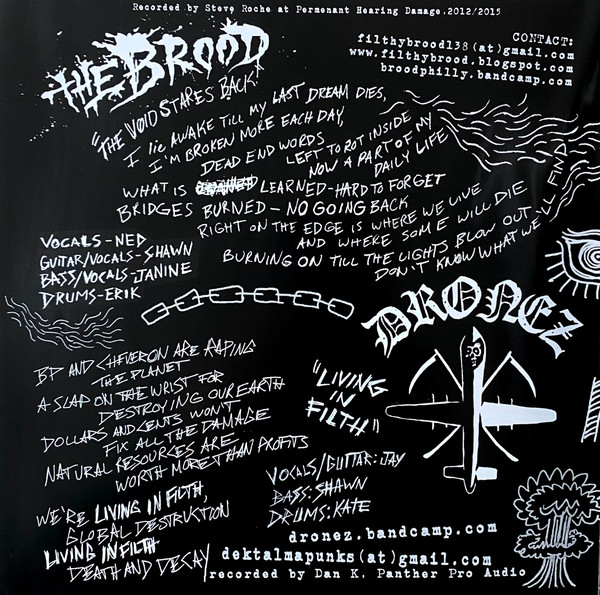 Recorded by Steve Roche at Permenant Hearing Damage.2012/2015
THE BROOD
CONTACT:
filthybrood138(at)gmail.com
www.filthybrood.blogspot.com
broodphilly.bandcamp.com
"THE VOID STARES BACK"
I lie AWAKE TILL MY LAST DREAM DIES,
I'M BROKEN MORE EACH DAY,
DEAD END WORDS
LEFT TO ROT INSIDE
NOW A PART OF MY
DAILY LIFE
WHAT IS LEARNED-HARD TO FORGET
BRIDGES BURNED - NO GOING BACK
RIGHT ON THE EDGE IS WHERE WE LIVE
AND WHERE SOME WILL DIE
BURNING ON TILL THE LIGHTS BLOW OUT -
DON'T KNOW WHAT WE'LL FIND
VOCALS-NED
GUITAR/VOCALS-SHAWN
BASS/VOCALS-JANINE
DRUMS-ERIK
DRONEZ
"LIVING
IN
FILTH"
BP AND CHEVERON ARE RAPING
THE PLANET
A SLAP ON THE WRIST FOR
DESTROYING OUR EARTH
DOLLARS AND CENTS WON'T
FIX ALL THE DAMAGE
NATURAL RESOURCES ARE
WORTH MORE THAN PROFITS
WE'RE LIVING IN FILTH,
GLOBAL DESTRUCTION
LIVING IN FILTH
DEATH AND DECAY
VOCALS/GUITAR: JAY
BASS: SHAWN
DRUMS: KATE
dronez.bandcamp.com
dektalmapunks(at)gmail.com
recorded by Dan K. Panther Pro Audio